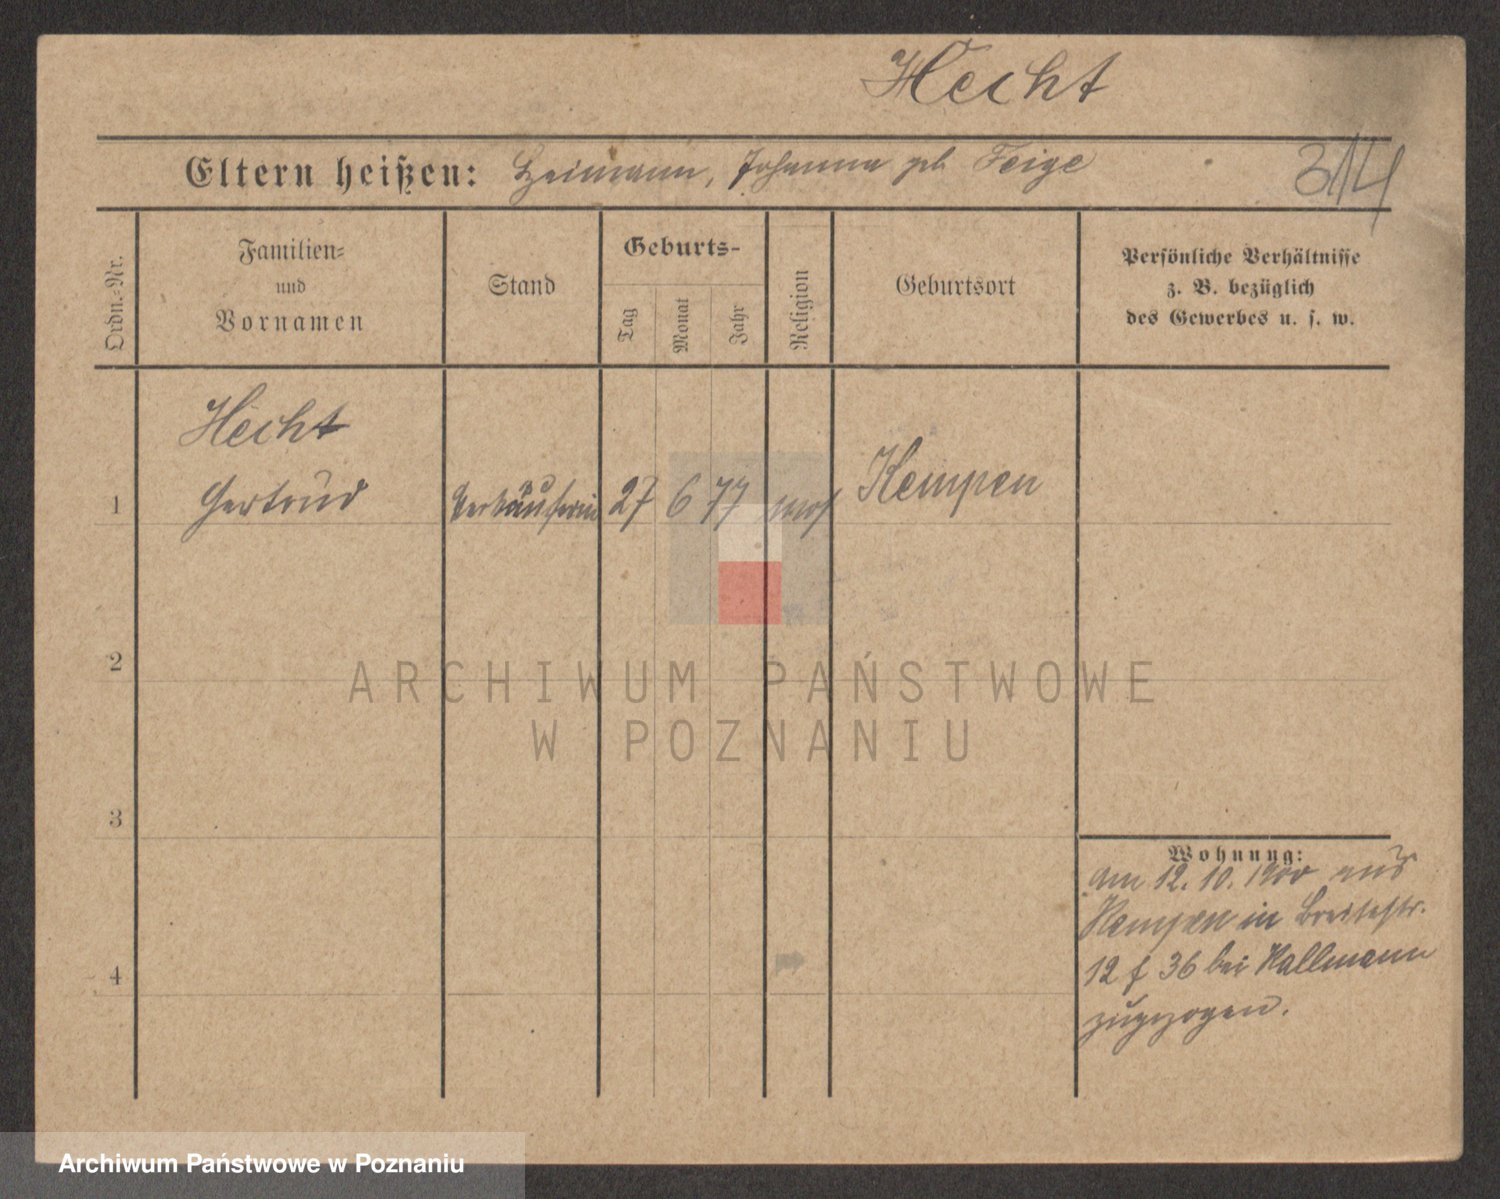 Hecht
Eltern heißen: Heimann, Johanna geb Feige
314
Ordn.-Nr.
Familien-
und
Vornamen
Stand
Geburts-
Tag
Monat
Jahr
Religion
Geburtsort
Persönliche Verhältnisse
z. B. bezüglich
des Gewerbes u. s. w.
Hecht
1 Gertrud Verkäuferin 27 6 77 mos Kempen
2
3
4
Wohnung:
am 12. 10. 1900 aus
Kempen in Breitestr.
12 f 36 bei Hallmann
zugezogen.
ARCHIWUM PAŃSTWOWE
W POZNANIU
Archiwum Państwowe w Poznaniu